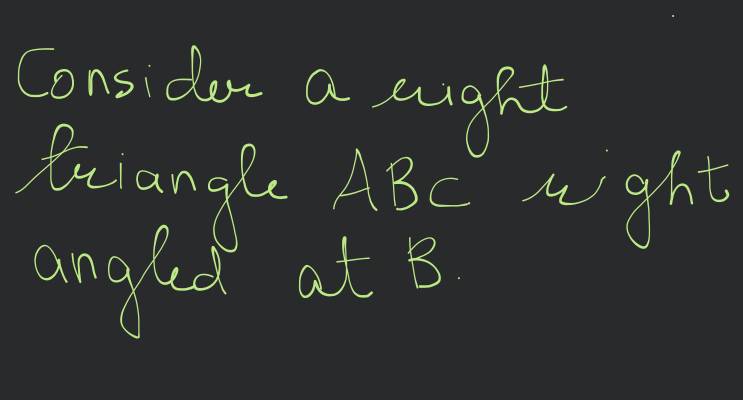 Consider a right
triangle ABC right
angled at B.